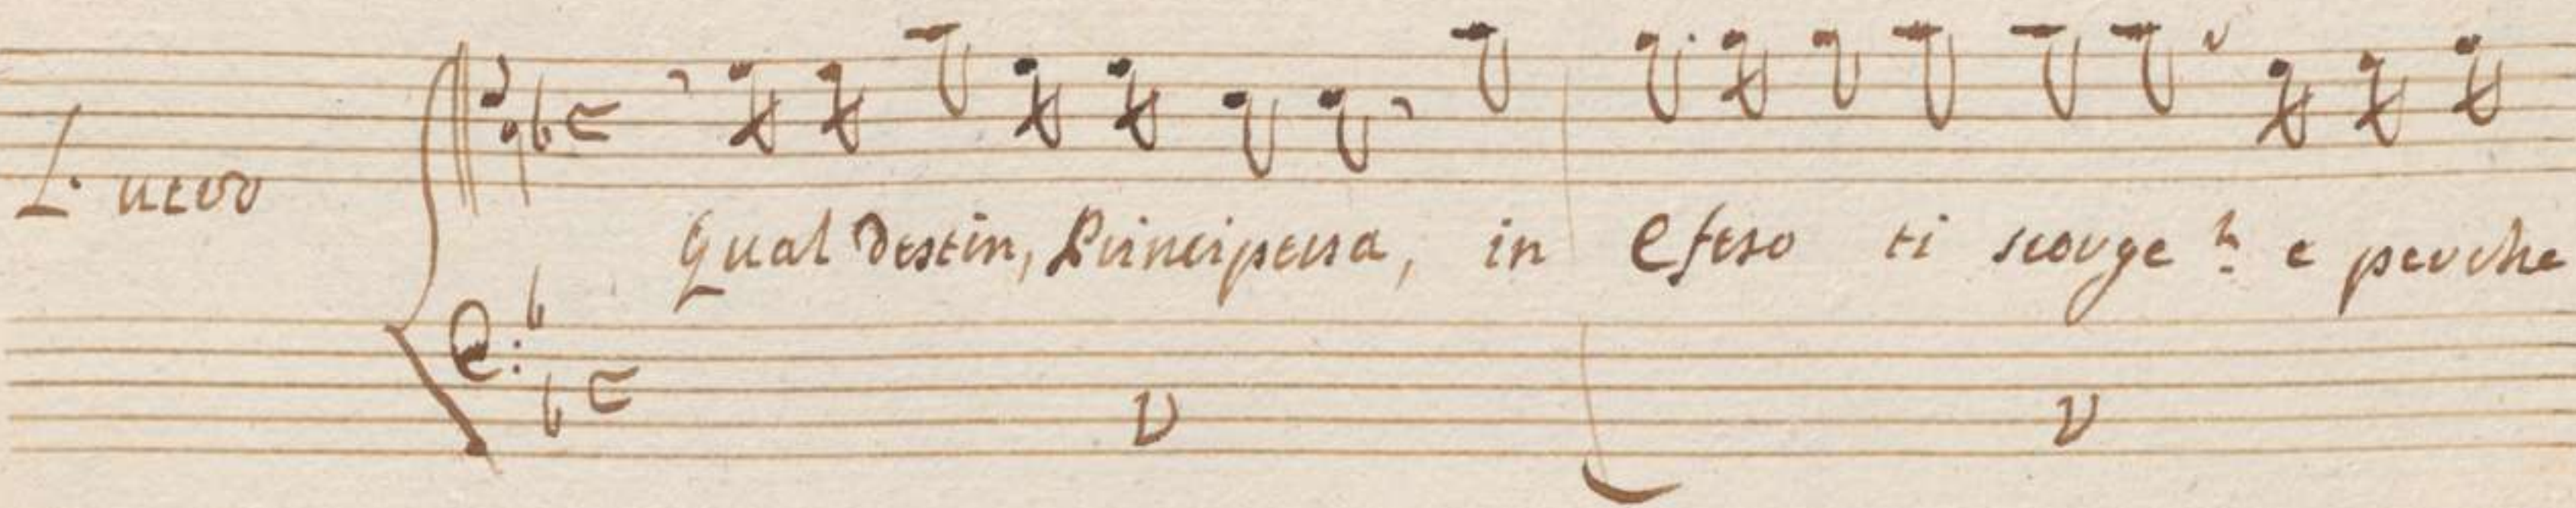 L. Vero
Qual destin, Principessa, in Efeso ti scorge? e perche